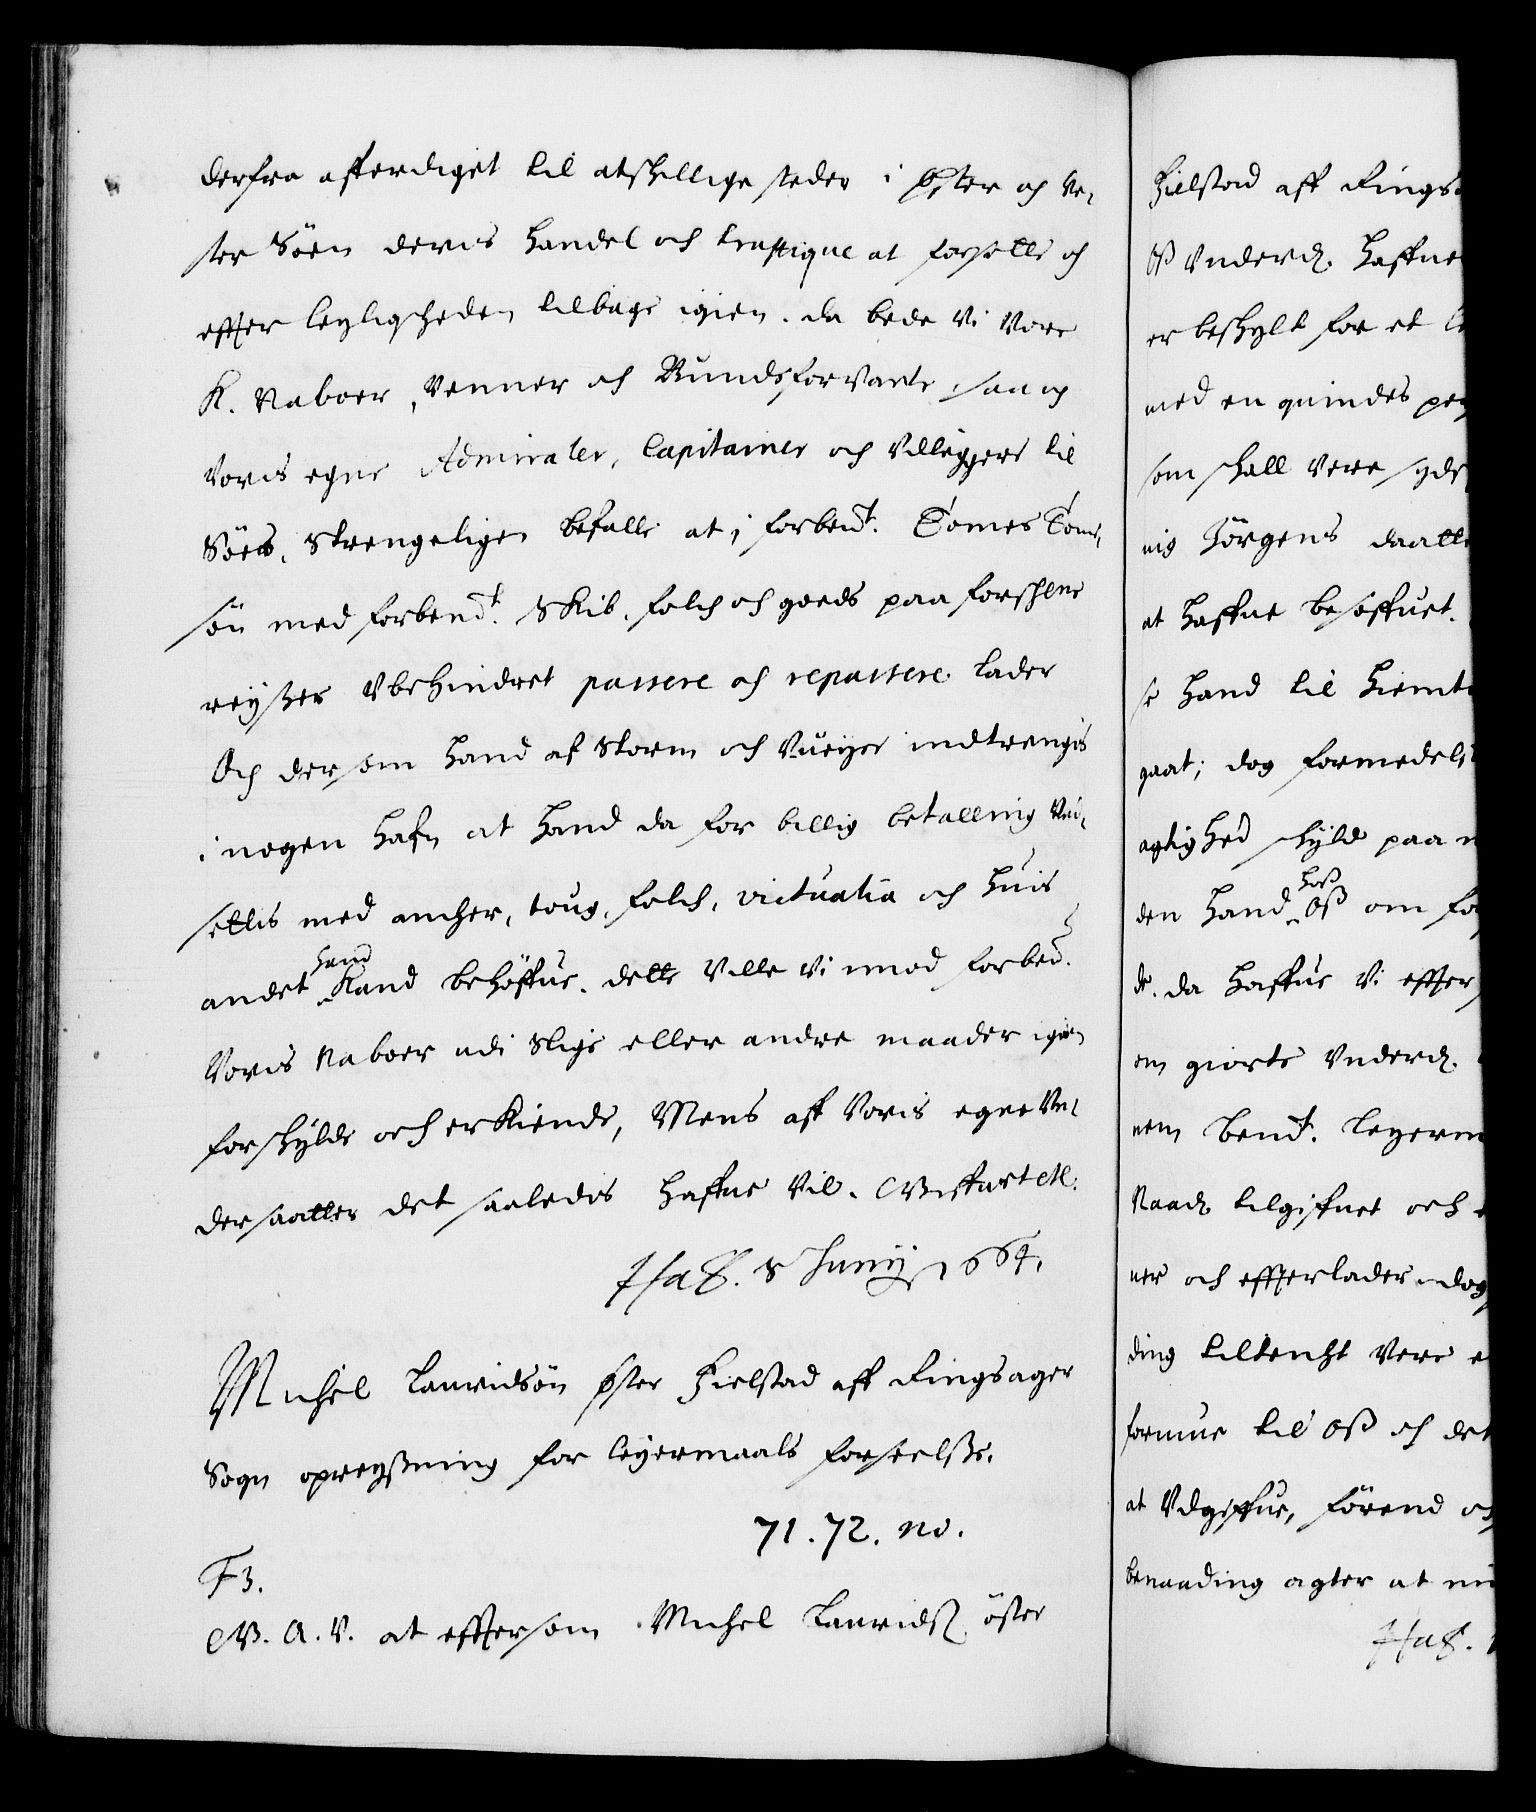 derfra afferdiget til atskellige steder i Øster och Ve-
ster Söen deris handel och traffique at forsette och
effter leyligheden tilbage igien. da bede vi Vore
K. Naboer, Venner och Bundsforvante, saa og
voris egne Admiraler, Capitainer och Udliggere til
Söes, Strengeligen befalle at i forbent. Tomes Toms-
sön med forbent. Skib, folch och goeds paa forschrne
reyßer Vbehindret passere och repassere lader
Och dersom hand af Storm och Vueyer indtrengis
i nogen hafn at hand da for billig betalling Und-
settis med ancher, toug, folch, victualia och huis
andet hand Kand behöffue. dette Ville Vi imod forben.
Voris Naboer udi Slige eller andre maader igien
forskylde och erkiende, Mens aff Voris egne Vn-
dersaatter det saaledis haffue vil. Giffuet etc.
Hafn. 8 Junij 1664.
Michel Lauridsön Øster Hielstad aff Ringsager
Sogn opreyßning for leyermaals forseelße.
71. 72. no.
F3.
G. A. V. at efftersom Michel Lauridß. öster
Hielstad aff Rings
Oß Underd. haffue
er beskylt for et
med en quindes per
som skall vere syds
nis Jörgens daatte
at haffue besoffuet.
se hand til Hiemt
gaat; dog formedelst
agtighed skyld paa
den hand hoß Oß om
de. da haffue Vi effter
om giorte Underd.
nem bent. leyerm
Naad. tilgiffuet och
ner och effterlader. dog
ding tiltencht vere
formue til Oß och det
at Udgiffue, förend och
benaading agter at
Hafn.